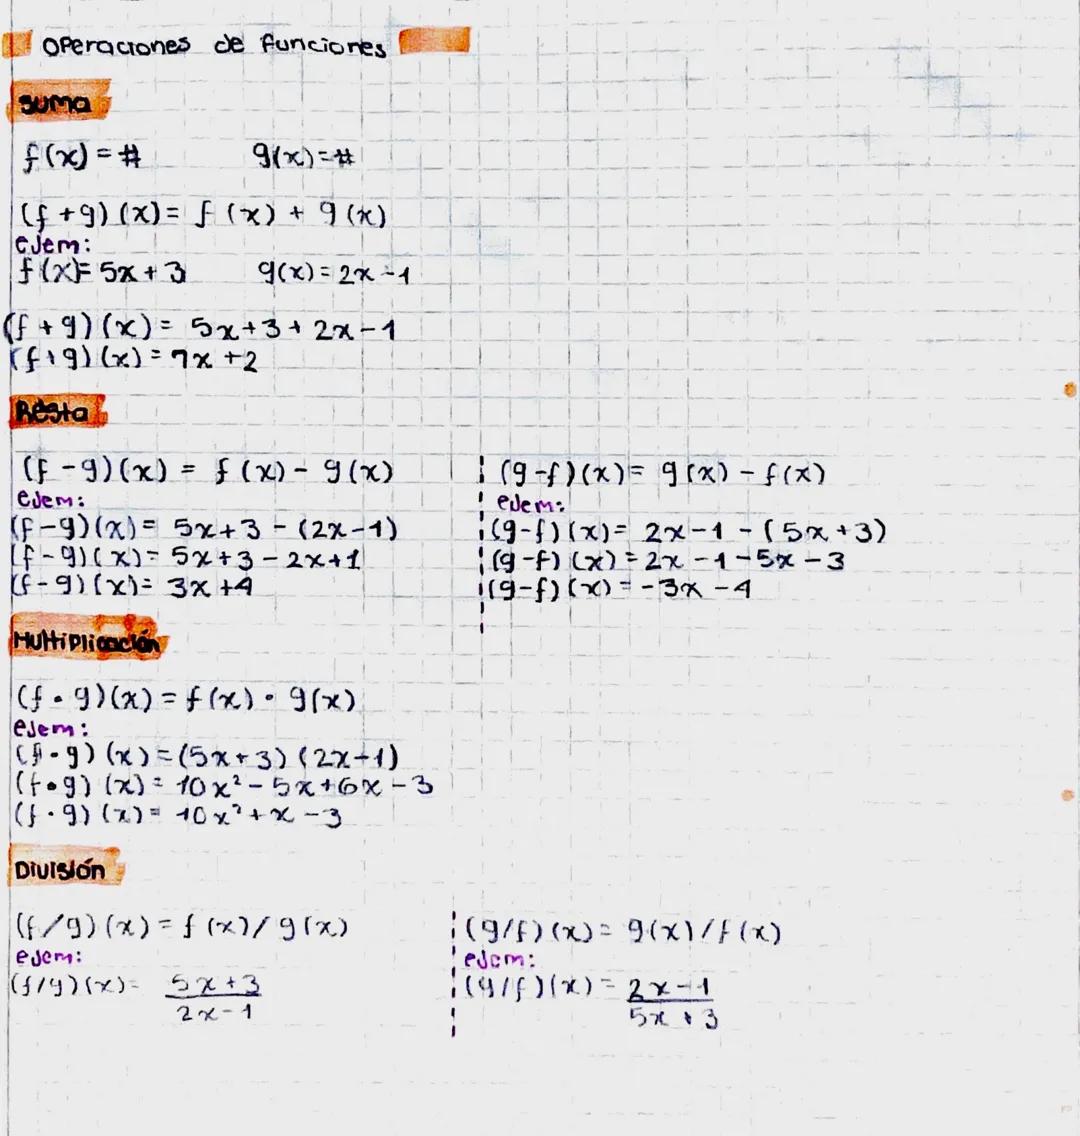 Operaciones de funciones
Suma
f(x) = # g(x) = #
(f + g)(x) = f(x) + g(x)
ejem:
f(x) = 5x + 3 g(x) = 2x - 1
(f + g)(x) = 5x + 3 + 2x - 1
(f + g)(x) = 7x + 2
Resta
(f - g)(x) = f(x) - g(x)
ejem:
(f - g)(x) = 5x + 3 - (2x - 1)
(f - g)(x) = 5x + 3 - 2x + 1
(f - g)(x) = 3x + 4
(g - f)(x) = g(x) - f(x)
ejem:
(g - f)(x) = 2x - 1 - (5x + 3)
(g - f)(x) = 2x - 1 - 5x - 3
(g - f)(x) = -3x - 4
Multiplicación
(f · g)(x) = f(x) · g(x)
ejem:
(f · g)(x) = (5x + 3)(2x - 1)
(f · g)(x) = 10x² - 5x + 6x - 3
(f · g)(x) = 10x² + x - 3
División
(f/g)(x) = f(x)/g(x)
ejem:
(f/g)(x) = 5x + 3
2x - 1
(g/f)(x) = g(x)/f(x)
ejem:
(g/f)(x) = 2x - 1
5x + 3